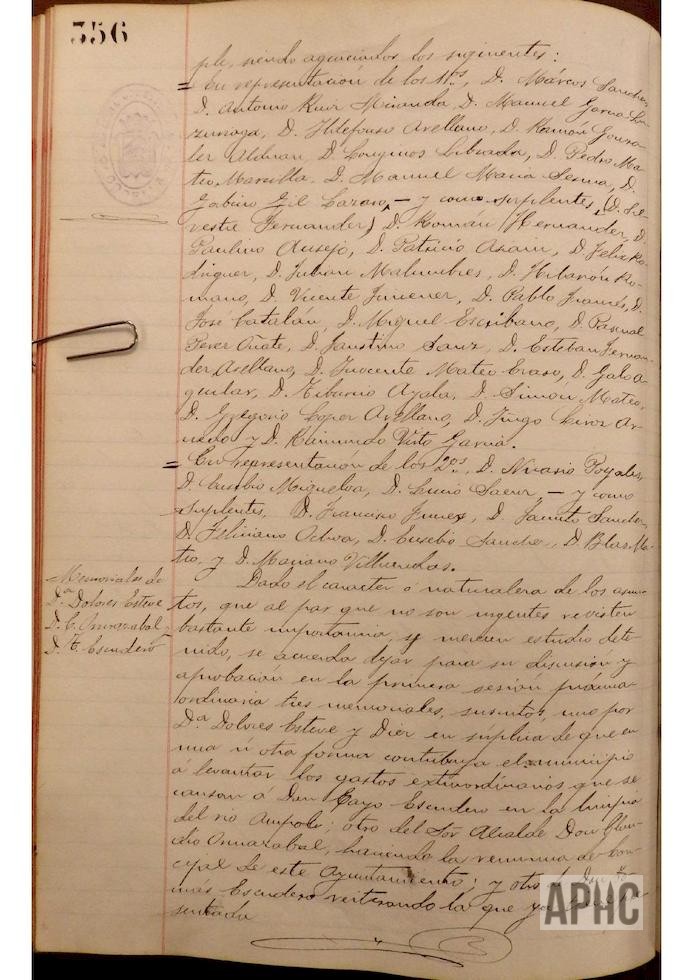 356
ple, siendo agraciados los siguientes:
= En representación de los 1.os, D. Márcos Sanchez,
D. Antonio Ruiz Miranda, D. Manuel Garcia
D. Ildefonso Arellano, D. Ramón Gonza-
lez Aldman, D. Longinos Librada, D. Pedro Ma-
teo Marsilla, D. Manuel Maria Serna, D.
Gabino Gil Lazaro, — y como suplentes, (D. Sil-
vestre Fernandez) D. Román Hernandez, D.
Paulino Ausejo, D. Patricio Asain, D. Felix Ro-
driguez, D. Julian Malumbres, D. Hilarión Ro-
mano, D. Vicente Jimenez, D. Pablo Francés, D.
José Catalán, D. Miguel Escribano, D. Pascual
Perez Oñate, D. Faustino Sanz, D. Esteban Fernan-
dez Arellano, D. Inocente Mateo Eraso, D. Galo A-
guilar, D. Tiburcio Ayala, D. Simón Mateo,
D. Gregorio Lopez Arellano, D. Ar-
nedo y D. Raimundo Virto Garcia.
= En representación de los 2.os, D. Nicasio Poyales,
D. Eusebio Miguelez, D. Lucio Saenz, — y como
suplentes, D. Francisco Jimenez, D. Jacinto Sanchez,
D. Feliciano Ochoa, D. Eusebio Sanchez, D. Blas Ma-
teo, y D. Mariano Villuendas.
Memoriales de
D.ª Dolores Esteve
D. E.
D. T. Escudero
Dado el caracter ó naturaleza de los asun-
tos, que al par que no son urgentes revisten
bastante importancia, y merecen estudio dete-
nido, se acuerda dejar para su discusión y
aprobación en la primera sesión próxima
ordinaria tres memoriales, suscritos, uno por
D.ª Dolores Esteve y Diez en suplica de que en
una ú otra forma contribuya el municipio
á levantar los gastos extraordinarios que se
causan á Don Cayo Escudero en la limpia
del rio; otro del Sór Alcalde Don
haciendo la renuncia de Con-
cejal de este Ayuntamiento; y otro de Don To-
mas Escudero reiterando la que ya tiene pre-
sentada
APHC